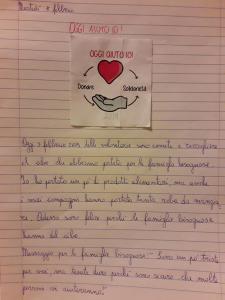 Martedì 8 febbraio
OGGI AIUTO IO!
OGGI AIUTO IO!
Donare
Solidarietà
Oggi 8 febbraio con delle volontarie sono venute a raccogliere
il cibo che abbiamo portato per le famiglie bisognose.
Io ho portato un po' di prodotti alimentari, ma anche
i miei compagni hanno portato tanta roba da mangia
re. Adesso sono felice perché le famiglie bisognose
hanno del cibo.
Messaggio per le famiglie bisognose: " Sono un po' triste
per voi, ma tenete duro perché sono sicuro che molte
persone vi aiuteranno"